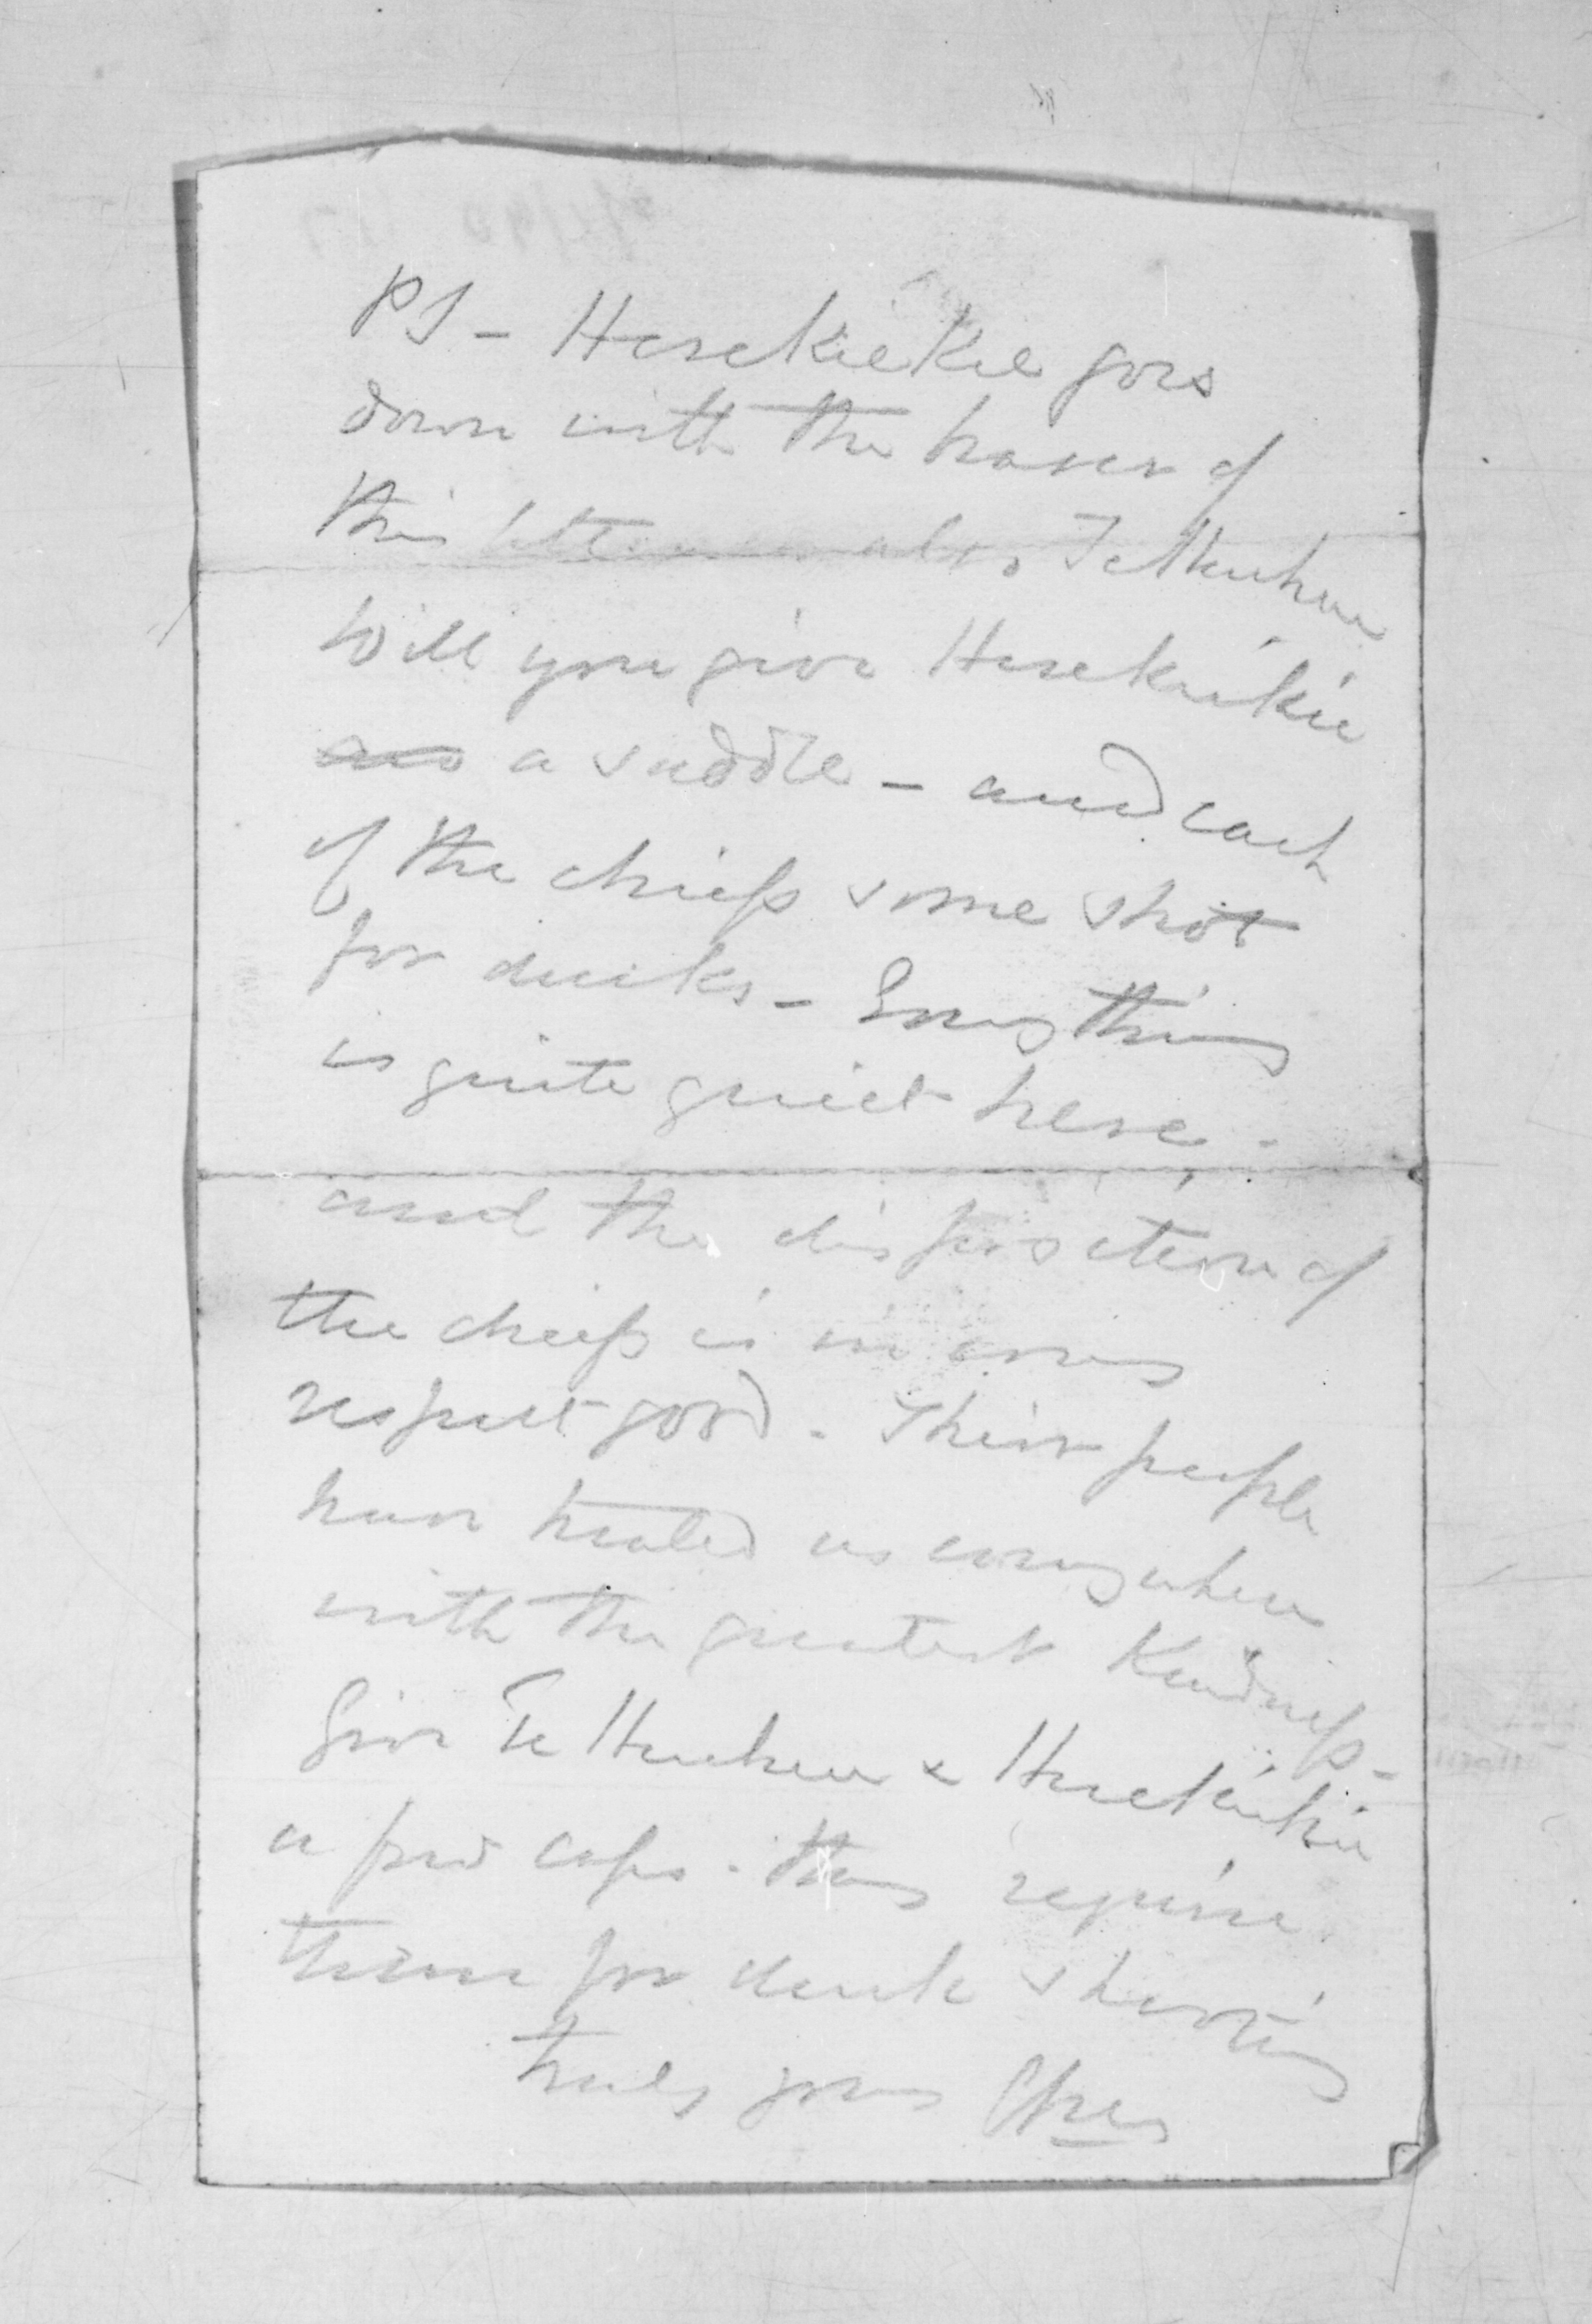 PS - Hesekiekie goes
down with the bearer of
this letter also Te Heuheu
Will you give Hesekiekie
a saddle - and each
of the chiefs some shot
for ducks - Every thing
is quite quiet here -
and the disposition of
the chiefs is in every
respect good. Their people
have treated us everywhere
with the greatest Kindness -
Give Te Heuheu & Hesekiekie
a few caps. they require
them for duck shooting
truly yours